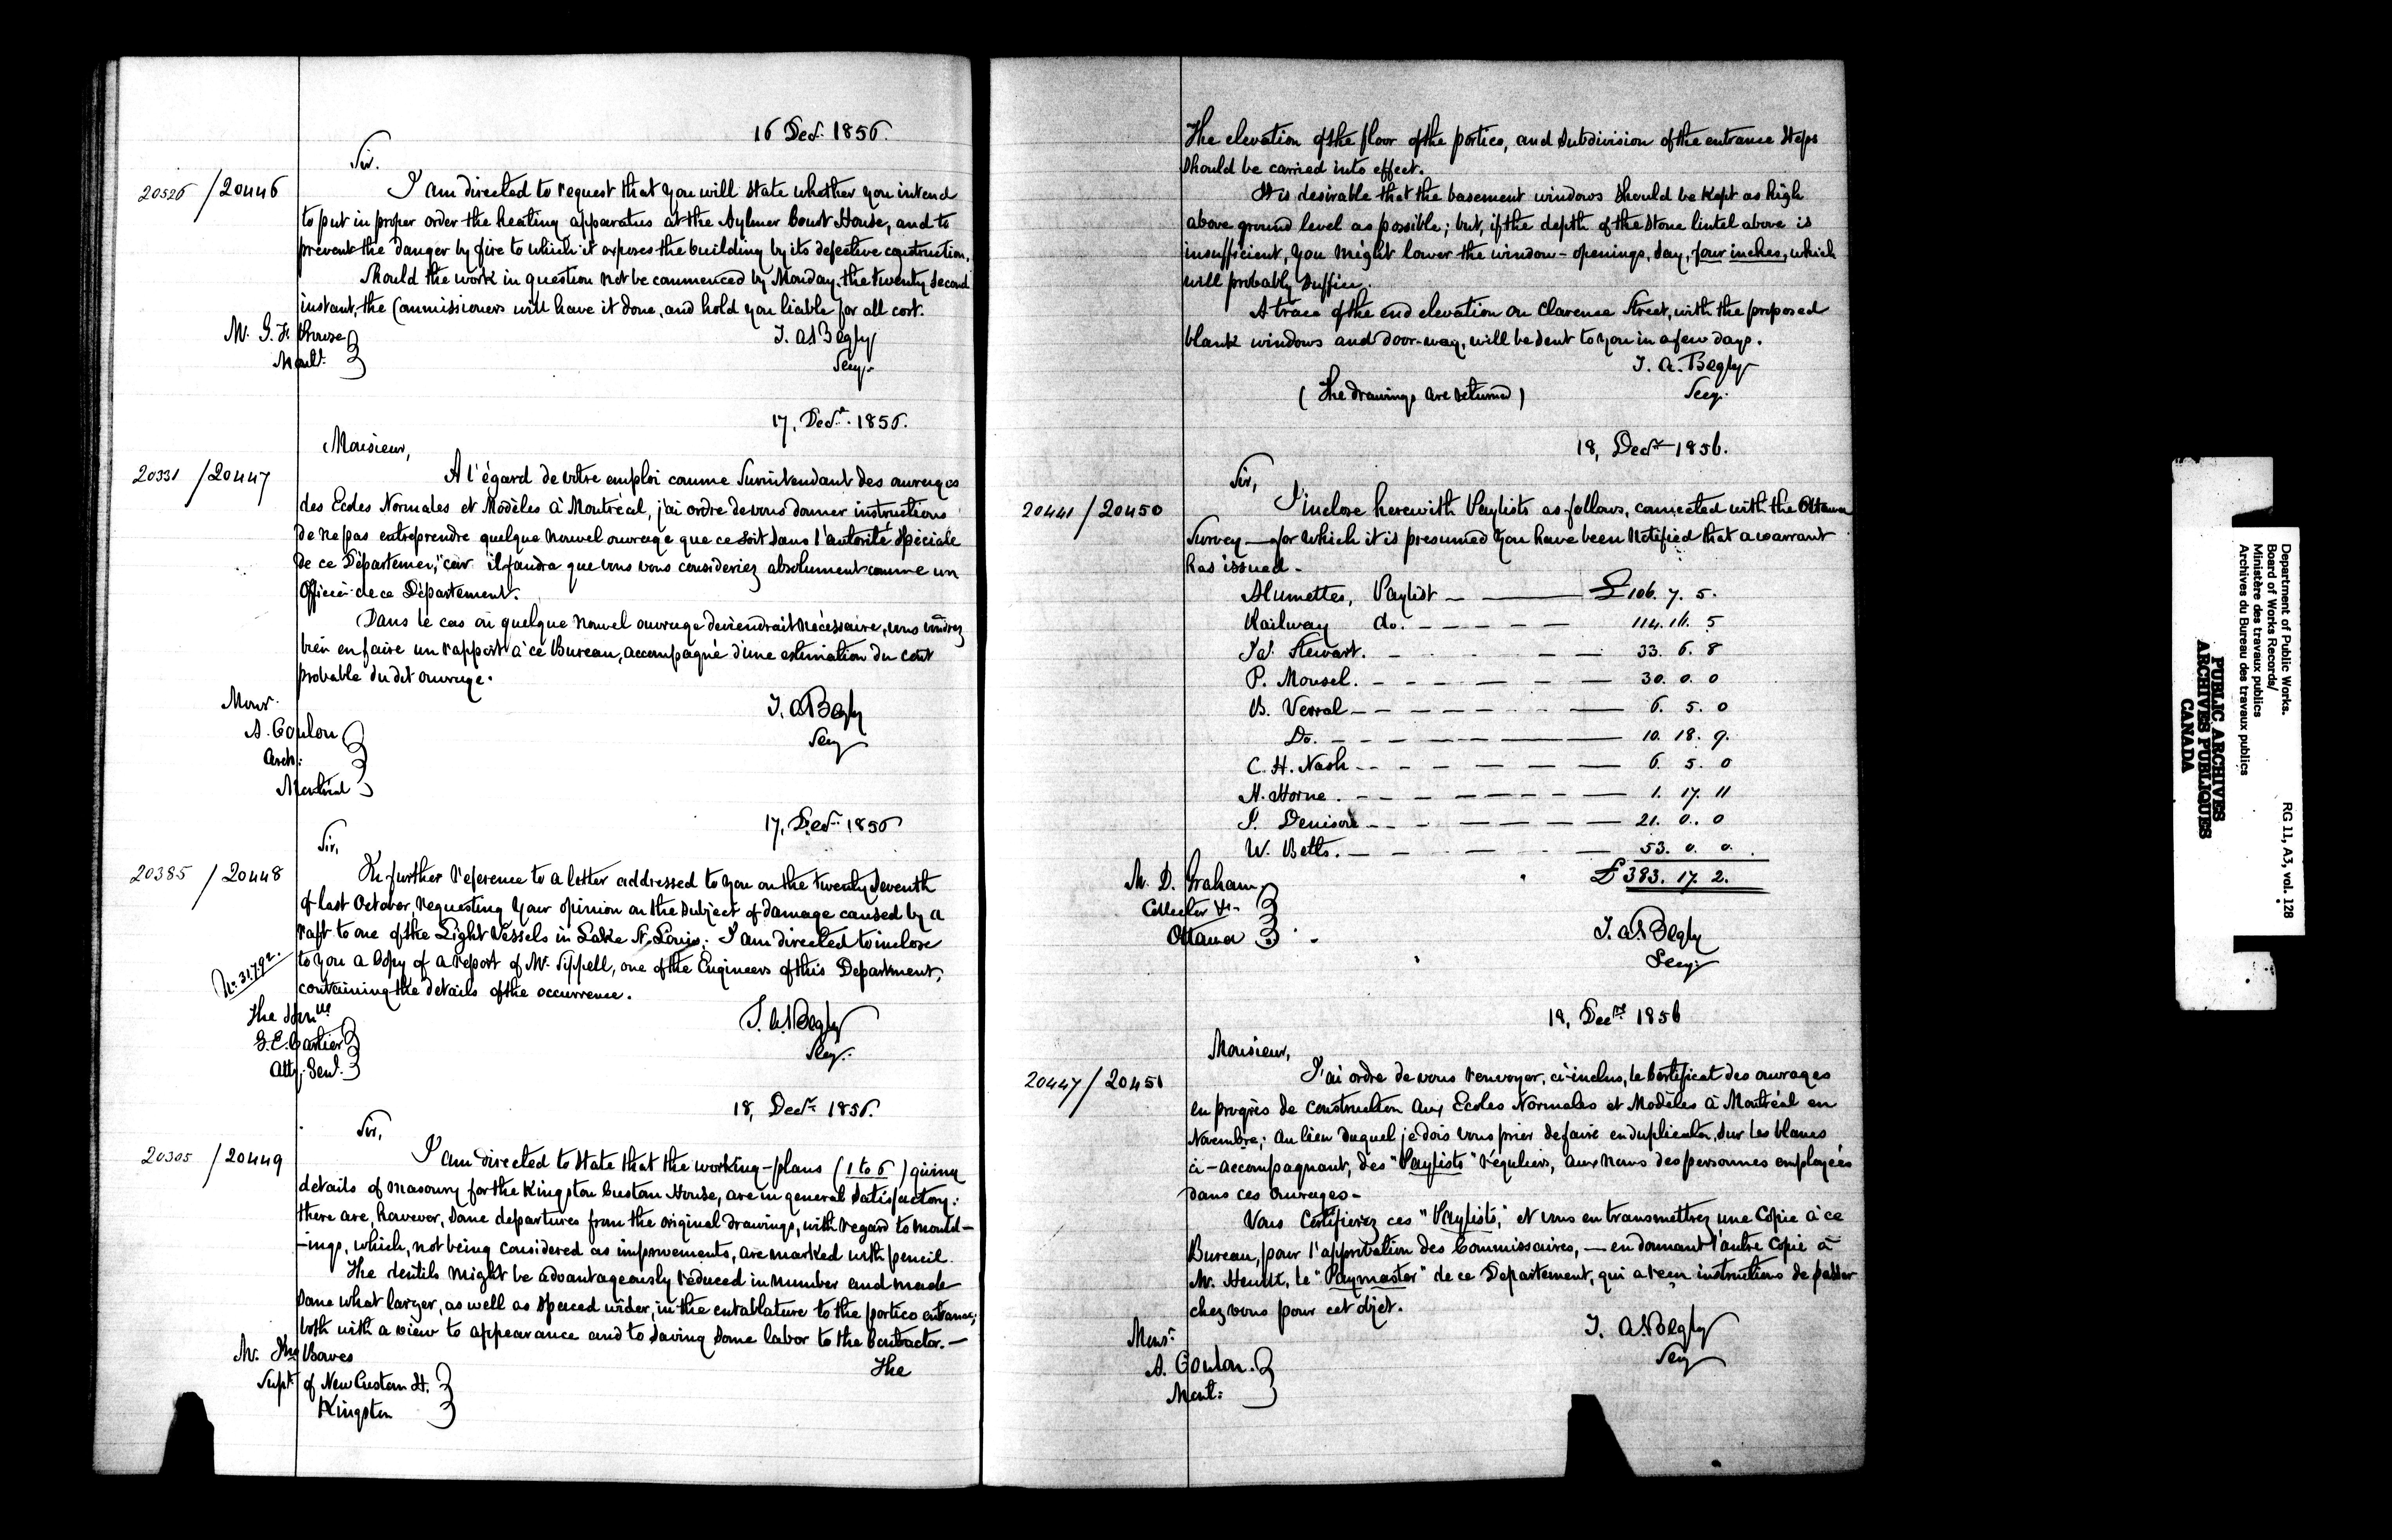 16 Decr. 1856.
Sir.
20526 / 20446
I am directed to request that you will state whether you intend
to put in proper order the heating apparatus at the Aylmer Court House, and to
prevent the danger by fire to which it exposes the building by its defective construction.
Should the work in question not be commenced by Monday, the twenty second
instant, the Commissioners will have it done, and hold you liable for all cost.
Mr. G. F.
Mont:
T. A. Begly
Secy.
17, Decr. 1856.
Monsieur,
20331 / 20447
A l'égard de votre emploi comme Surintendant des ouvrages
des Ecoles Normales et Modèles à Montréal, j'ai ordre de vous donner instructions
de ne pas entreprendre quelque nouvel ouvrage que ce soit sans l'autorité spéciale
de ce Départemen," car il faudra que vous vous consideriez absolument comme un
Officier de ce Département.
Dans le cas où quelque nouvel ouvrage deviendrait nécessaire, vous voudrez
bien en faire un rapport à ce Bureau, accompagné d'une estimation du coût
probable du dit ouvrage.
Monsr.
A. Coulon
Arch:
Montréal
T. A. Begly
Secy
17, Decr. 1856
Sir,
20385 / 20448
In further reference to a letter addressed to you on the twenty seventh
of last October, requesting your opinion on the subject of damage caused by a
raft to one of the Light Vessels in Lake St. Louis; I am directed to inclose
to you a Copy of a report of Mr. Sippell, one of the Engineers of this Department,
containing the details of the occurrence.
No. 31792.
The Honble
G. E. Cartier
Atty. Genl.
T. A. Begly
Secy.
18, Decr. 1856.
Sir,
20305 / 20449
I am directed to state that the working-plans (1 to 6) giving
details of masonry for the Kingston Custom House, are in general satisfactory:
there are, however, some departures from the original drawings, with regard to mould-
-ings, which, not being considered as improvements, are marked with pencil.
The dentils might be advantageously reduced in number and made
some what larger, as well as spaced wider, in the entablature to the portico entrance;
both with a view to appearance and to saving some labor to the Contractor. -
The
Mr. Jno Bowes
Supt. of New Custom H.
Kingston
The elevation of the floor of the portico, and subdivision of the entrance steps
should be carried into effect.
It is desirable that the basement windows should be kept as high
above ground level as possible; but, if the depth of the stone lintel above is
insufficient, you might lower the window-openings, say, four inches, which
will probably suffice.
A trace of the end elevation on Clarence Street, with the proposed
blank windows and door-way, will be sent to you in a few days.
T. A. Begly
Secy.
( The drawings are returned )
18, Decr 1856.
Sir,
20441 / 20450
I inclose herewith Paylists as follows, connected with the Ottawa
Survey — for which it is presumed you have been notified that a warrant
has issued -
Alumettes, Paylist - — £106. 7. 5.
Railway do. - - - - - 114. 16. 5
Js. Stewart. - - - - 33. 6. 8
P. Mousel. - - - - - 30. 0. 0
B. Verral - - - - - 6. 5. 0
Do. - - - - - 10. 18. 9.
C. H. Nash - - - - - 6. 5. 0
H. Horne. - - - - - 1. 17. 11
S. Denison - - - - - 21. 0. 0
W. Betts. - - - - - 53. 0. 0.
£383. 17. 2.
Mr. D. Graham,
Collector &c.
Ottawa
T. A. Begly
Secy.
18, Decr 1856
Monsieur,
20447 / 20451
J'ai ordre de vous renvoyer, ci-inclus, le Certificat des ouvrages
en progrès de construction aux Ecoles Normales et Modèles à Montréal en
Novembre; au lieu duquel je dois vous prier de faire en duplicata, sur les blancs
ci-accompagnant, des "Paylists" réguliers, aux noms des personnes employées
dans ces ouvrages -
Vous Certifierez ces "Paylists," et vous en transmettrez une Copie à ce
Bureau, pour l'approbation des Commissaires, — en donnant l'autre Copie à
Mr. Hewitt, le "Paymaster" de ce Departement, qui a reçu instructions de passer
chez vous pour cet objet.
Monsr.
A. Coulon.
Mont:
T. A. Begly
Secy
Department of Public Works.
Board of Works Records/
Ministère des travaux publics
Archives du Bureau des travaux publics
RG 11, A3, vol. 128
PUBLIC ARCHIVES
ARCHIVES PUBLIQUES
CANADA